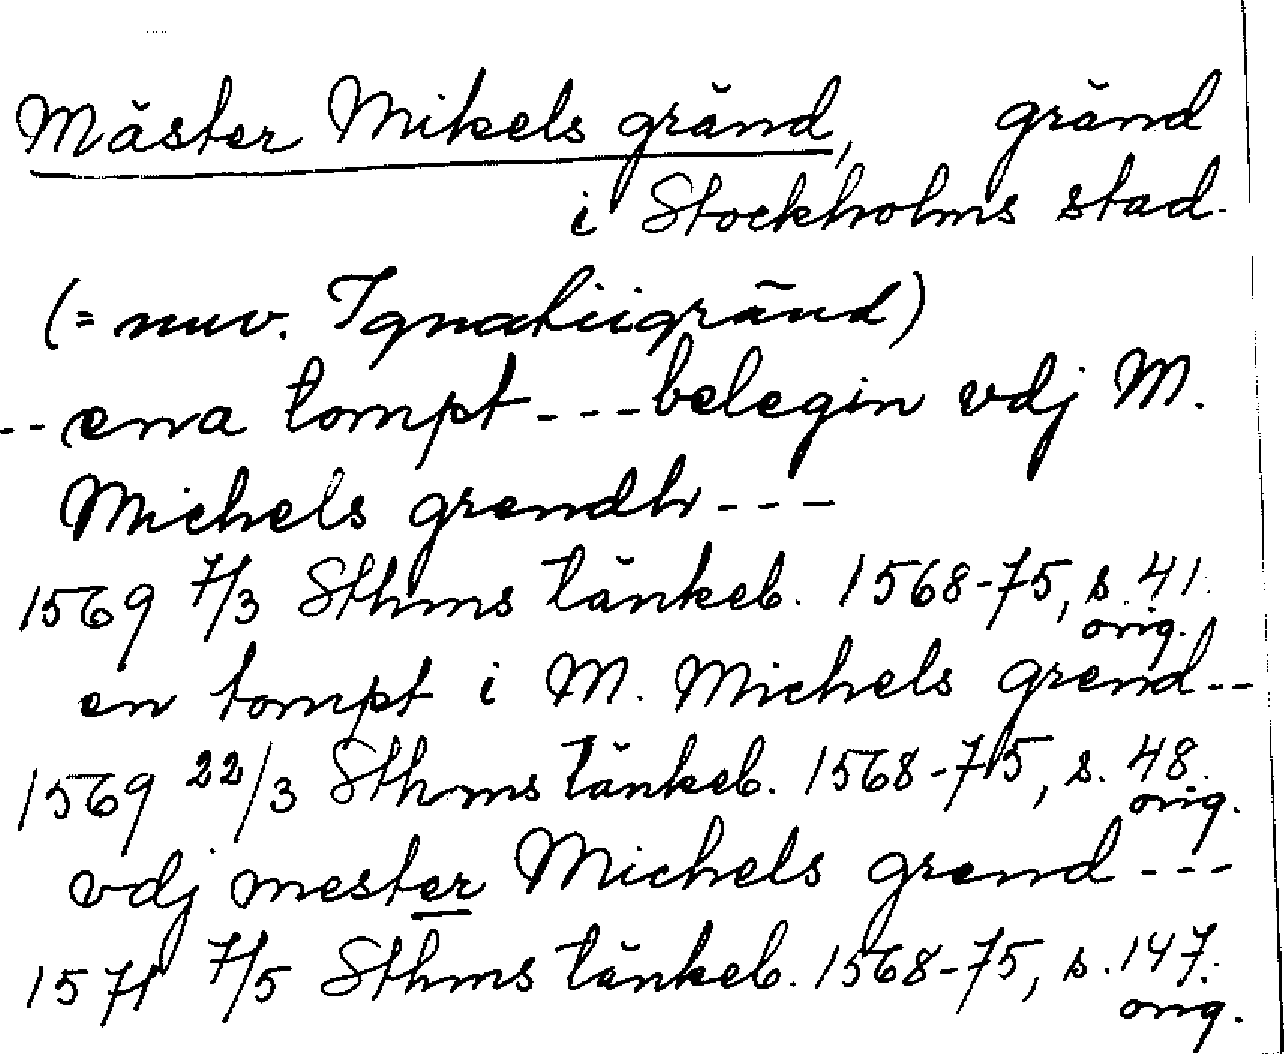 Mäster Mikels gränd, gränd
i Stockholms stad.
(= nuv. Ignatiigränd)
--ena tompt---belegin vdj M.
Michels grendh---
1569 7/3 Sthms tänkeb. 1568-75, s. 41.
orig.
en tompt i M. Michels grend--
1569 22/3 Sthms tänkeb. 1568-75, s. 48.
orig.
vdj mester Michels grend---
1571 7/5 Sthms tänkeb. 1568-75, s. 147.
orig.